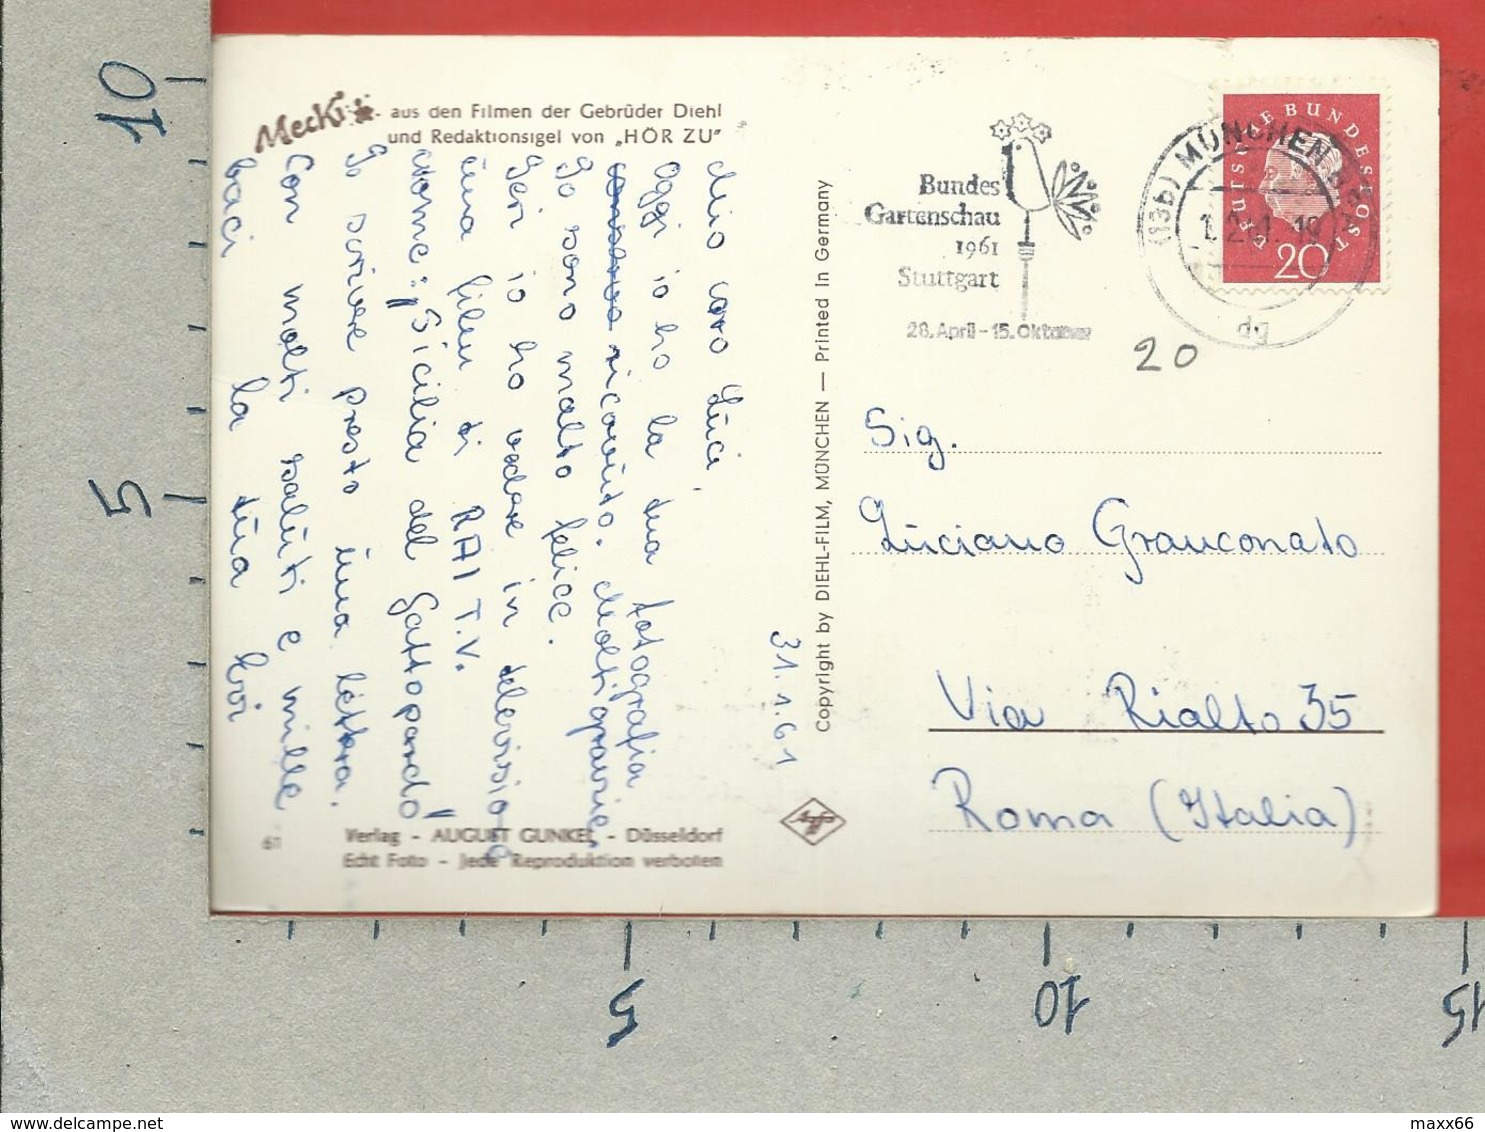 Mecki - aus den Filmen der Gebrüder Diehl
und Redaktionsigel von „HÖR ZU"
31.1.61
Mio caro Luci,
Oggi io ho la tua fotografia
ricevuto. Molti grazie
Io sono molto felice.
Ieri io ho vedere in televisione
una film di RAI T.V.
come: „Sicilia del Gattopardo"
Io scrivere presto una lettera.
Con molti saluti e mille
baci la tua
61
Verlag - AUGUST GUNKEL - Düsseldorf
Echt Foto - Jede Reproduktion verboten
Copyright by DIEHL-FILM, MÜNCHEN — Printed in Germany
Bundes
Gartenschau
1961
Stuttgart
28. April - 15. Oktober
DEUTSCHE BUNDESPOST
20
(13b) MÜNCHEN
dg
20
Sig.
Luciano Grauconato
Via Rialto 35
Roma (Italia)
Agfa
10
5
5
10
15
delcampe.net
maxx66